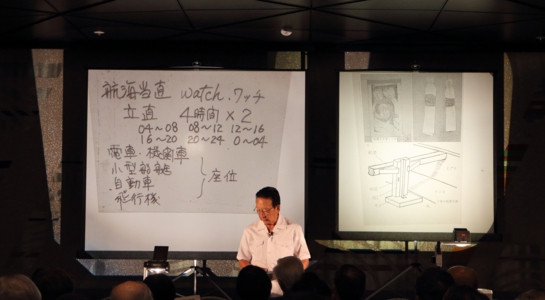 航海当直 watch.ワッチ
立直 4時間×2
04～08 08～12 12～16
16～20 20～24 0～04
電車・機関車
小型船舶
自動車
飛行機
座位